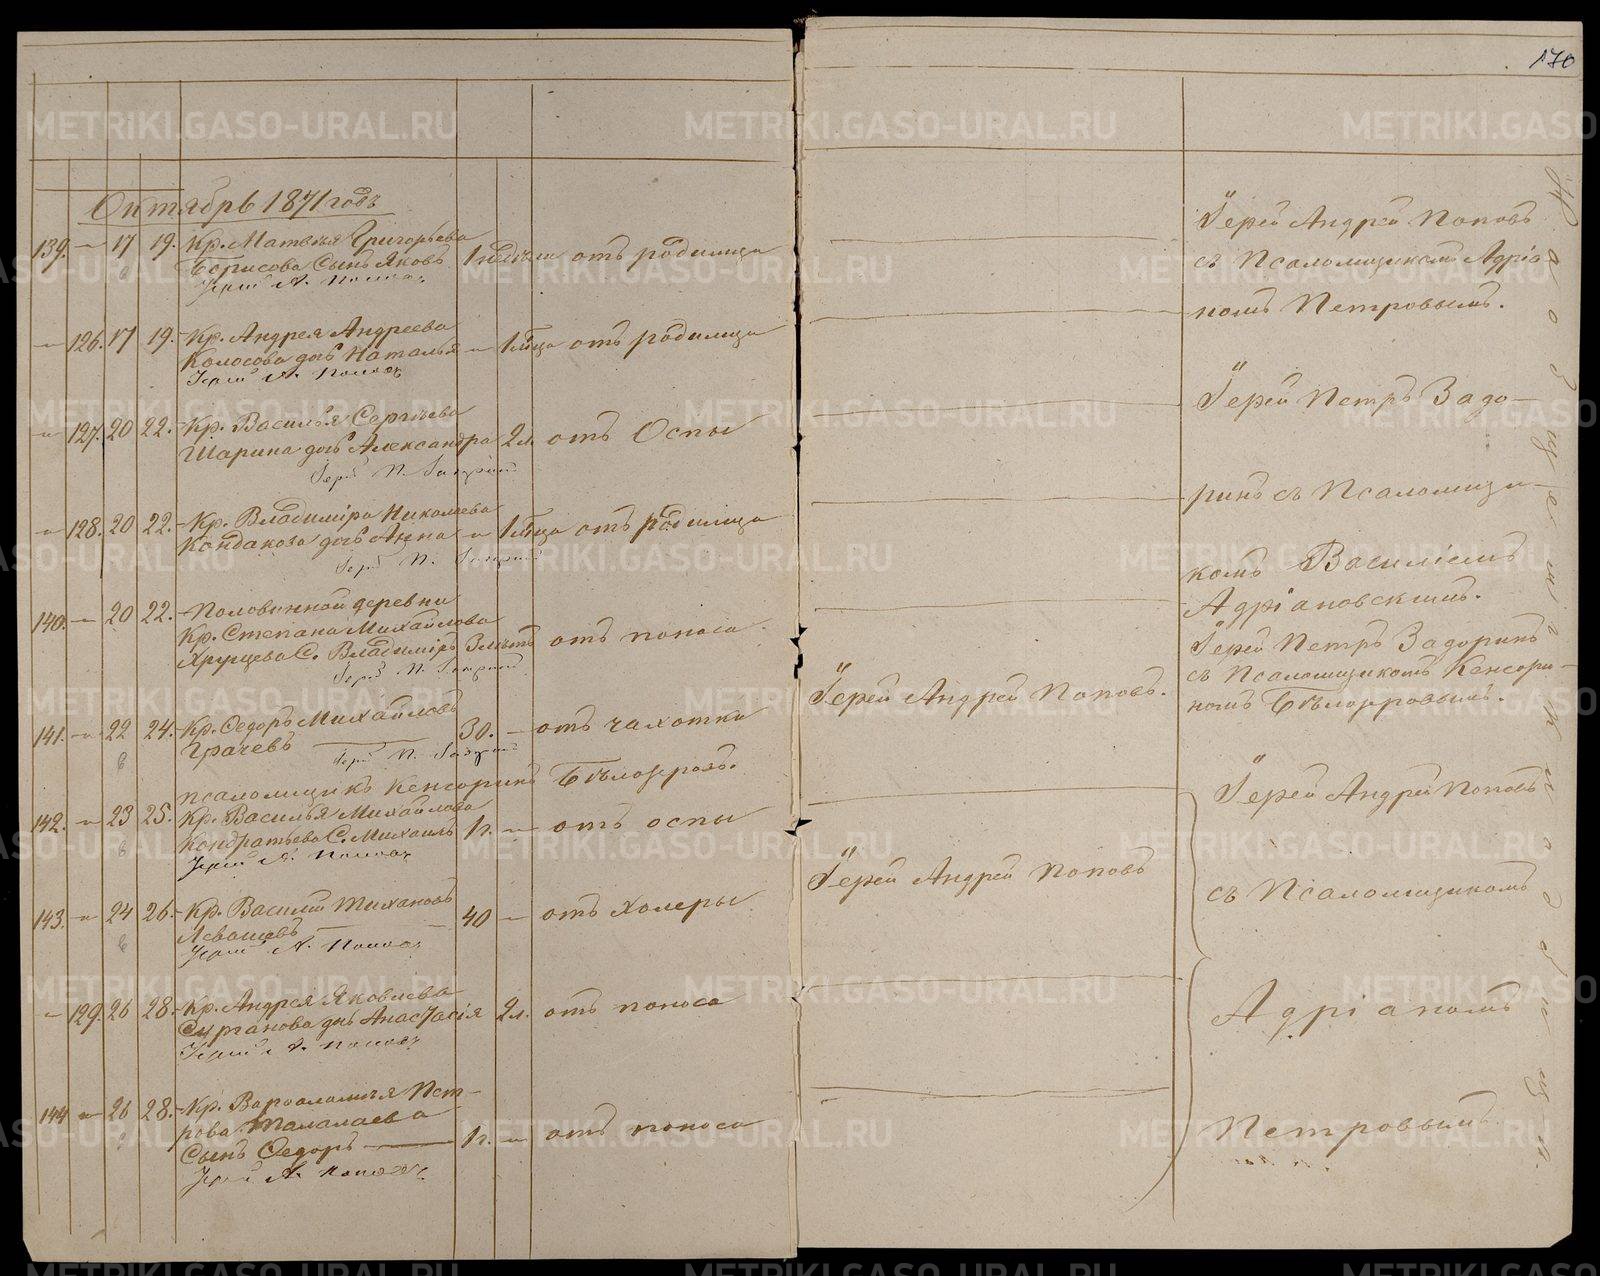 170
Октябрь 1871 годъ
139. – " – 17 19. Кр. Матвѣя Григорьева
Борисова Сынъ Яковъ 1 недѣли отъ родимца
Іерей А. Поповъ
– " – 126. 17 19. Кр. Андрея Андреева
Колосова дчь Наталья – " – 1 м̃ца отъ родимца
Іерей А. Поповъ
– " – 127. 20 22. Кр. Василья Сергѣева
Шарина дчь Александра 2 л. отъ Оспы
Іерей П.
– " – 128. 20 22. Кр. Владиміра Николаева
Кондакова дчь Анна – " – 1 м̃ца отъ родимца
Іерей П.
140. – " – 20 22. Половинной деревни
Кр. Степана Михайлова
Хрущева С. Владиміръ 3 лѣтъ отъ поноса
Іерей П.
141. – " – 22 24. Кр. Ѳедоръ Михайловъ
Грачевъ 30. – отъ чахотки
Іерей П.
псаломщикъ Кенсоринъ Бѣлозоровъ.
142. – " – 23 25. Кр. Василья Михайлова
Кондратьева С. Михаилъ 1 г. – " – отъ оспы
Іерей А. Поповъ
143. – " – 24 26. Кр. Василій Тихановъ
Левашевъ 40 – отъ холеры
Іерей А. Поповъ
– " – 129. 26 28. Кр. Андрея Яковлева
Сурганова дчь Анастасія 2 л. отъ поноса
Іерей А. Поповъ
144 – " – 26 28. Кр. Варѳоломѣя Пет-
рова Талалаева
Сынъ Ѳедоръ 1 г. – " – отъ поноса
Іерей А. Поповъ
Іерей Андрей Поповъ.
Іерей Андрей Поповъ
Іерей Андрей Поповъ
съ Псаломщикомъ Адріа-
номъ Петровымъ.
Іерей Петръ Задо-
ринъ съ Псаломщи-
комъ Василіемъ
Адріановскимъ.
Іерей Петръ Задоринъ
съ Псаломщикомъ Кенсори-
номъ Бѣлозоровымъ.
Іерей Андрей Поповъ
съ Псаломщикомъ
Адріаномъ
Петровымъ.
METRIKI.GASO-URAL.RU